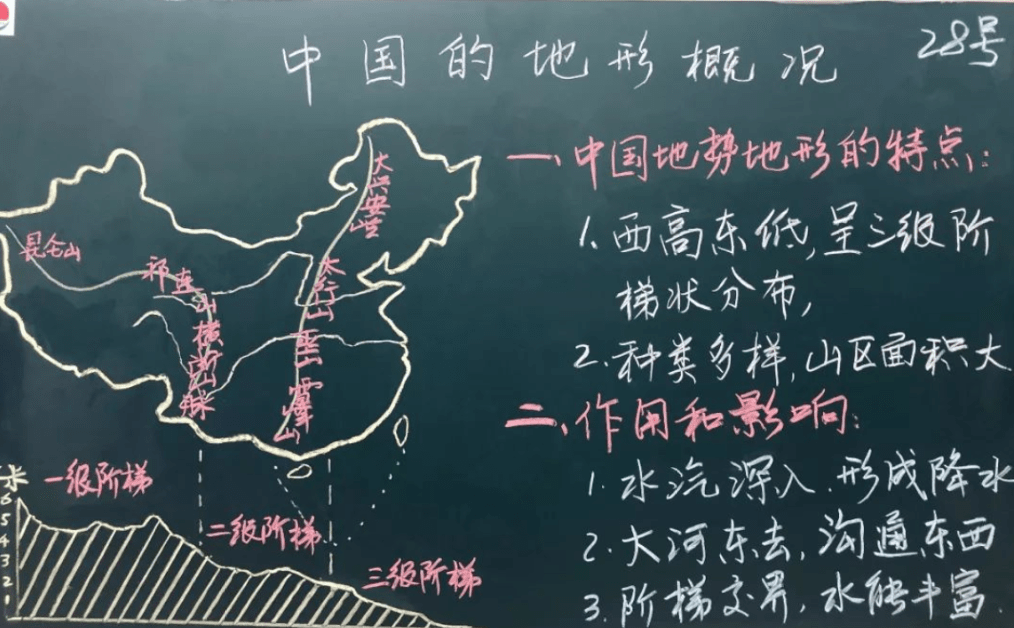 中国的地形概况
28号
一、中国地势地形的特点:
1.西高东低,呈三级阶
梯状分布,
2.种类多样,山区面积大
二、作用和影响:
1.水汽深入.形成降水
2.大河东去,沟通东西
3.阶梯交界,水能丰富.
大兴安岭
昆仑山
祁连山
太行山
横断山脉
巫山
雪峰山
米
6
5
4
3
2
1
一级阶梯
二级阶梯
三级阶梯